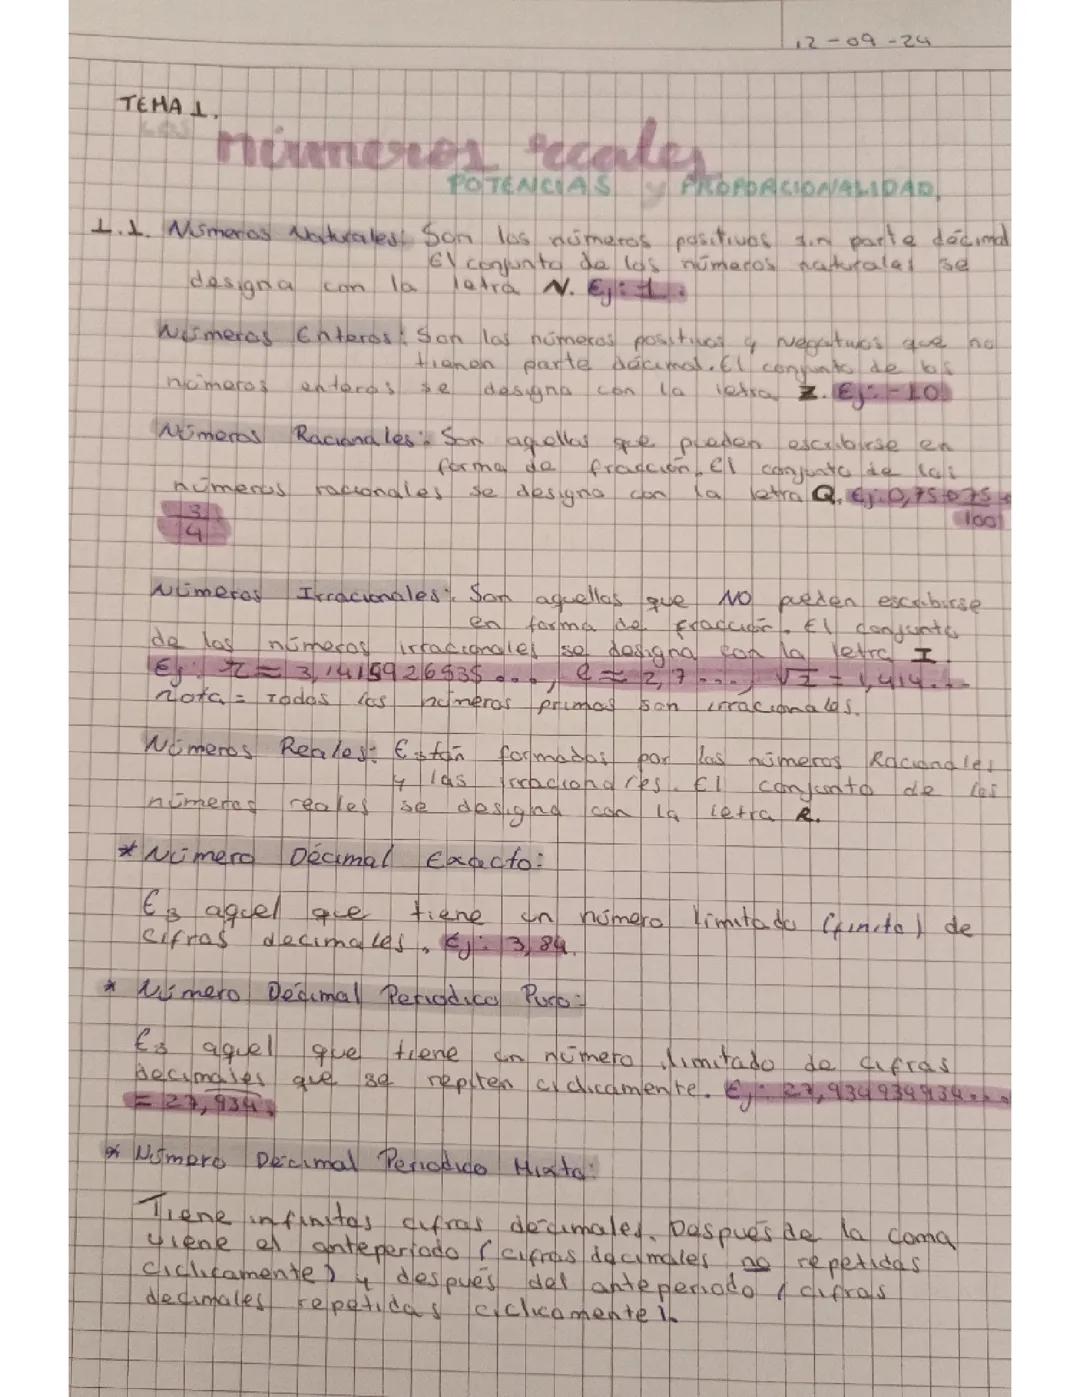 12-09-24
TEMA 1.
LOS
números reales
POTENCIAS y PROPORCIONALIDAD.
1.1. Números Naturales: Son los números positivos sin parte décimal
El conjunto de los números naturales se
designa con la letra N. Ej: 1.
Números Enteros: Son los números positivos y negativos que no
tienen parte décimal. El conjunto de los
números enteros se designa con la letra Z. Ej: -10
Números Racionales: Son aquellos que pueden escribirse en
forma de fracción. El conjunto de los
números racionales se designa con la letra Q. Ej: 0,75 o 75 =
3 100
4
Números Irracionales: Son aquellos que NO pueden escribirse
en forma de fracción. El conjunto
de los números irracionales se designa con la letra I
Ej: π ≈ 3,1415926535..., e ≈ 2,7..., √2 = 1,414...
nota = Todos los números primos son irracionales.
Números Reales: Están formados por los números Racionales
y los irracionales. El conjunto de los
números reales se designa con la letra R.
* Número Décimal Exacto:
Es aquel que tiene un número limitado (finito) de
cifras decimales. Ej: 3,84.
* Número Décimal Periodico Puro:
Es aquel que tiene un número limitado de cifras
decimales que se repiten ciclicamente. Ej: 27,934934934...
= 27,934.
* Número Décimal Periodico Mixto:
Tiene infinitas cifras décimales. Después de la coma
viene el anteperiodo (cifras decimales no repetidas
ciclicamente) y después del anteperiodo (cifras
decimales repetidas ciclicamente).